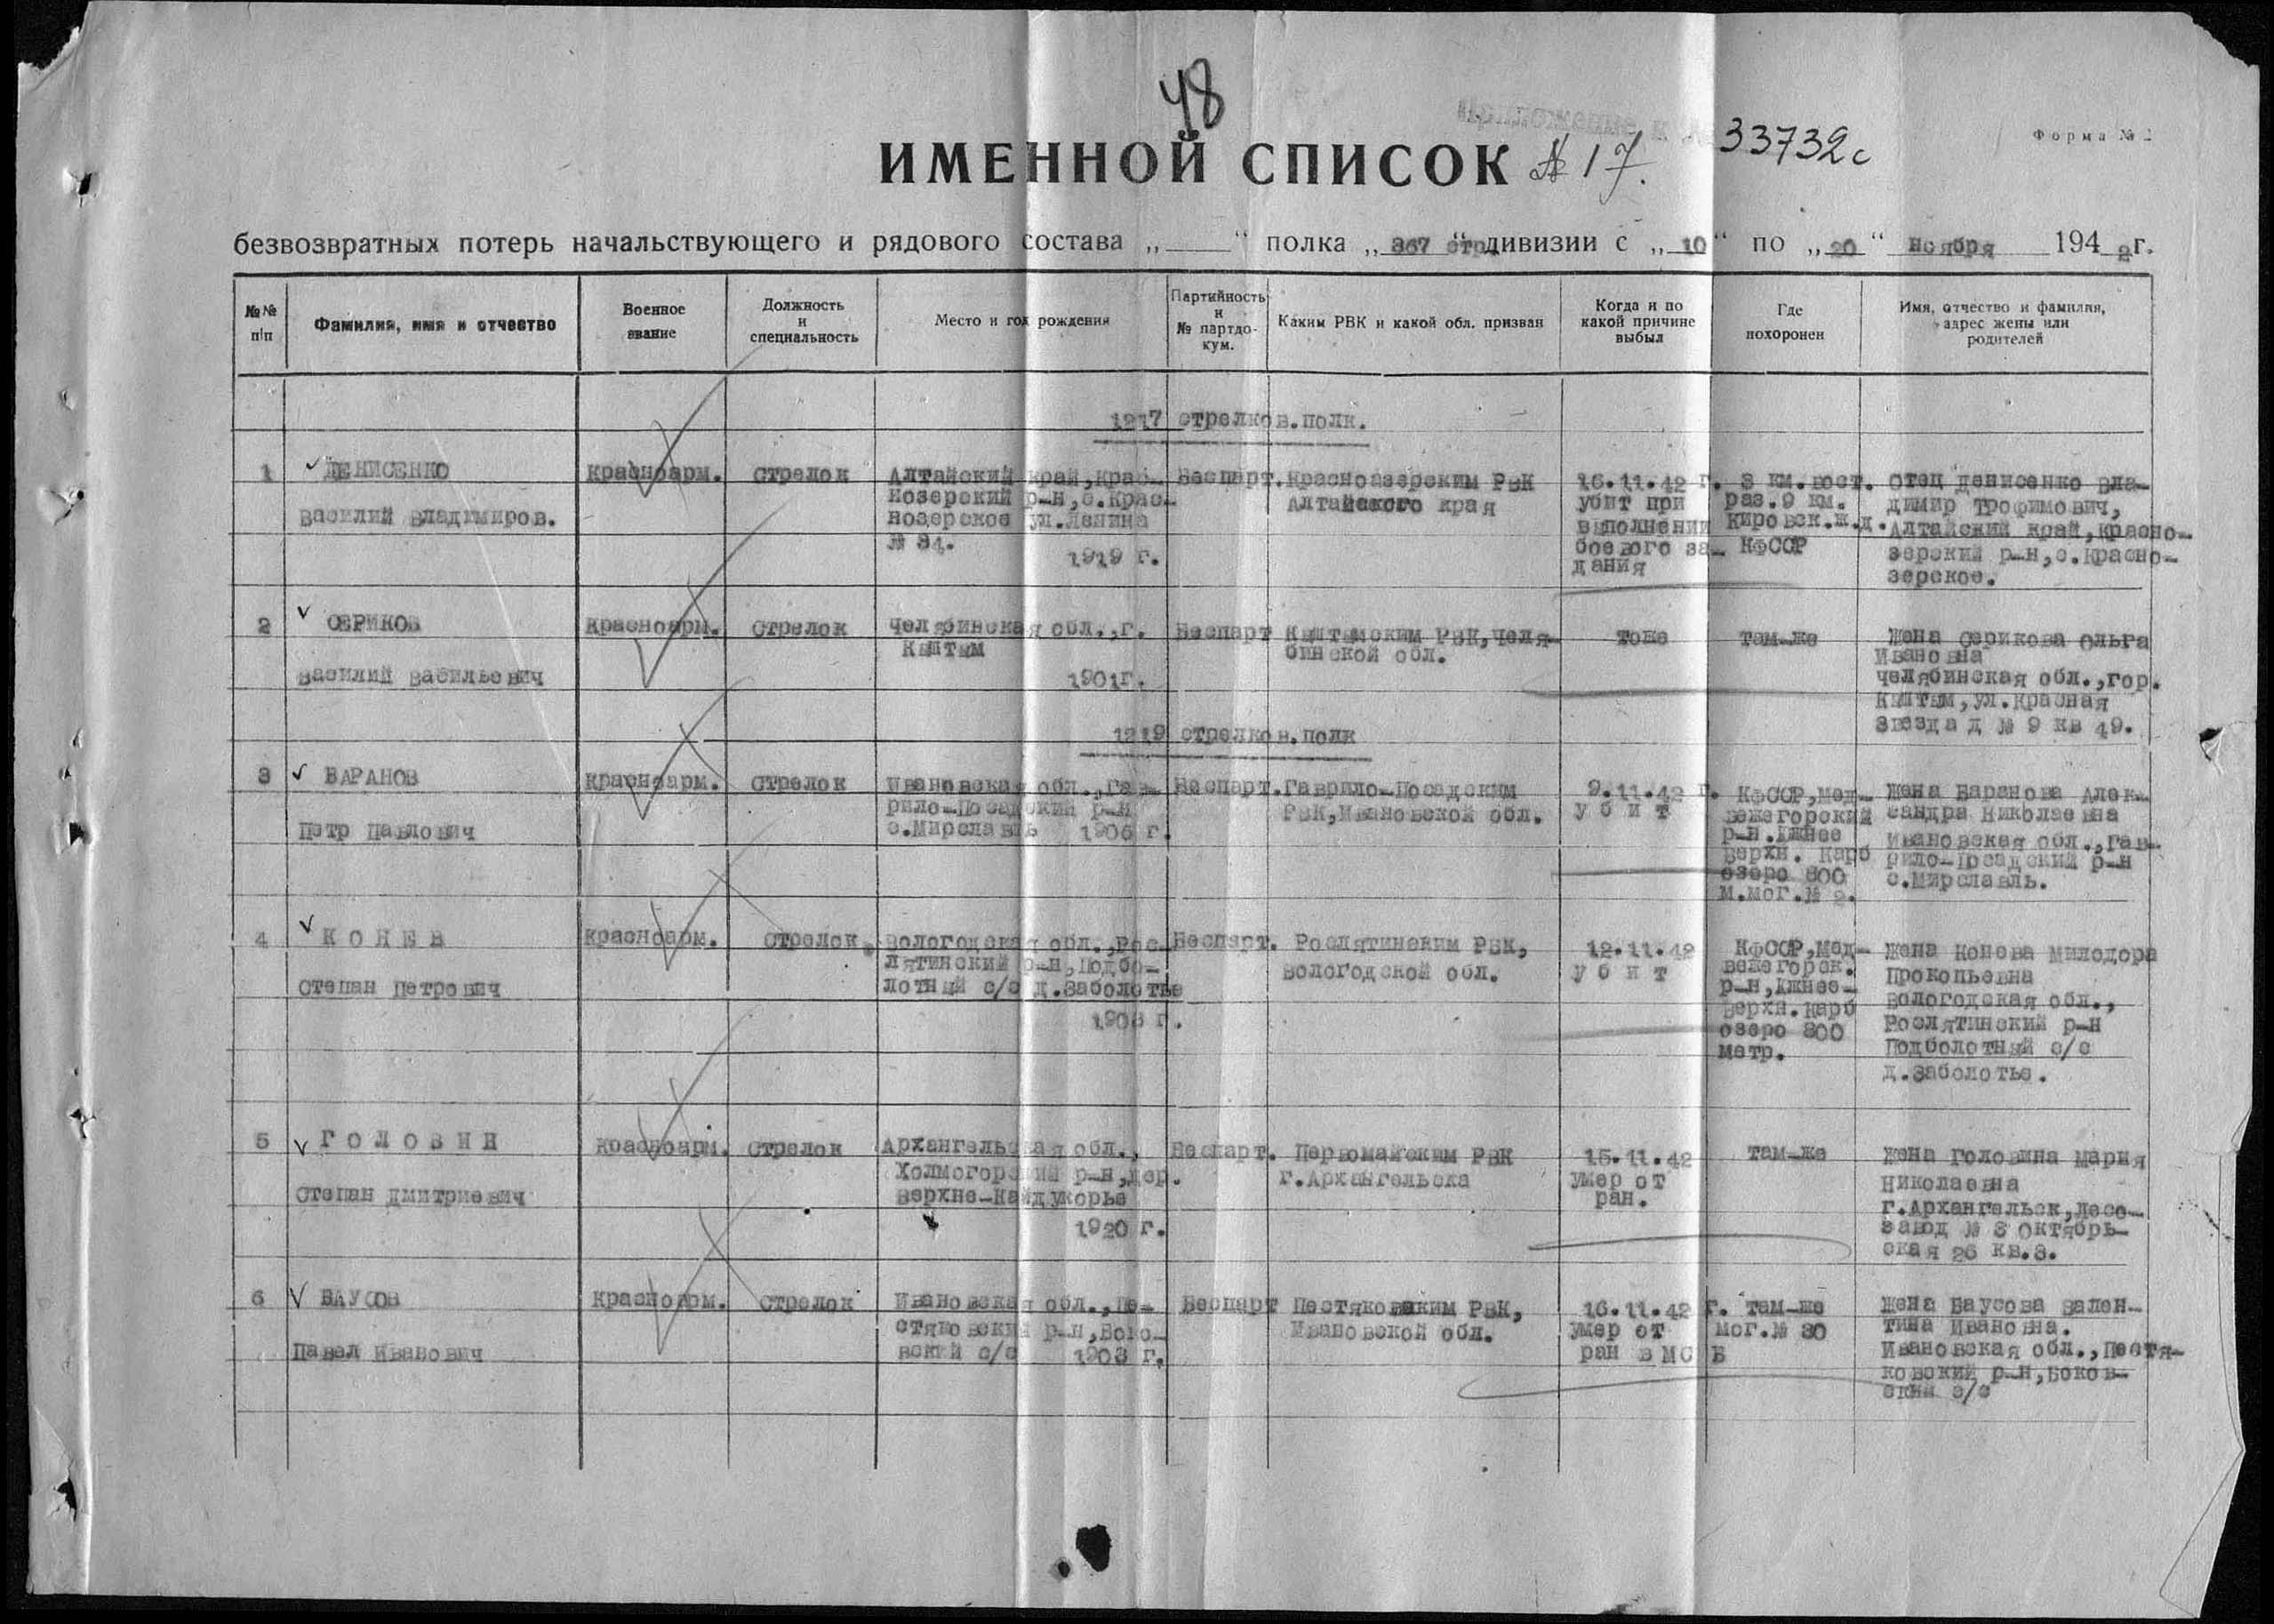 48
33732с
Форма №
ИМЕННОЙ СПИСОК № 17.
безвозвратных потерь начальствующего и рядового состава „ “ полка „ 367 стр “ дивизии с „ 10 “ по „ 20 “ ноября 1942г.
№№ п/п
Фамилия, имя и отчество
Военное звание
Должность и специальность
Место и год рождения
Партийность и № партдо-кум.
Каким РВК и какой обл. призван
Когда и по какой причине выбыл
Где похоронен
Имя, отчество и фамилия, адрес жены или родителей
1217 стрелков.полк.
1
ДЕНИСЕНКО
Василий Владимиров.
Красноарм.
Стрелок
Алтайский край, Крас-
нозерский р-н, с.Крас-
нозерское ул.Ленина
№ 34.
1919 г.
Беспарт.
Краснозерским РВК
Алтайского края
16.11.42 г.
убит при
выполнении
боевого за-
дания
3 км.вост.
раз.9 км.
Кировск.ж.д.
КФССР
Отец Денисенко Вла-
димир Трофимович,
Алтайский край, Красно-
зерский р-н, с.Красно-
зерское.
2
СЕРИКОВ
Василий Васильевич
Красноарм.
Стрелок
Челябинская обл., г.
Кыштым
1901г.
Беспарт
Кыштымским РВК, Челя-
бинской обл.
тоже
там-же
Жена Серикова Ольга
Ивановна
Челябинская обл., гор.
Кыштым, ул.Красная
Звезда д № 9 кв 49.
1219 стрелков.полк
3
БАРАНОВ
Петр Павлович
Красноарм.
Стрелок
Ивановская обл., Гав-
рило-Посадский р-н
с.Мирславль 1906 г.
Беспарт.
Гаврило-Посадским
РВК, Ивановской обл.
9.11.42 г.
у б и т
КФССР, Мед-
вежегорский
р-н.Южнее
Верхн. Карб
озеро 800
м.мог.№ 2.
Жена Баранова Алек-
сандра Николаевна
Ивановская обл., Гав-
рило-Посадский р-н
с.Мирславль.
4
К О Н Е В
Степан Петрович
Красноарм.
Стрелок
Вологодская обл., Рос-
лятинский р-н, Подбо-
лотный с/с д.Заболотье
1908 г.
Беспарт.
Рослятинским РВК,
Вологодской обл.
12.11.42
у б и т
КФССР, Мед-
вежегорск.
р-н, Южнее-
Верхн.Карб
озеро 800
метр.
Жена Конева Милодора
Прокопьевна
Вологодская обл.,
Рослятинский р-н
Подболотный с/с
д.Заболотье.
5
Г О Л О В И Н
Степан Дмитриевич
Красноарм.
Стрелок
Архангельская обл.,
Холмогорский р-н, дер.
Верхне-Найдукорье
1920 г.
Беспарт.
Первомайским РВК
г.Архангельска
15.11.42
умер от
ран.
там-же
Жена Головина Мария
Николаевна
г.Архангельск, Лесо-
завод № 3 Октябрь-
ская 26 кв.3.
6
БАУСОВ
Павел Иванович
Красноарм.
Стрелок
Ивановская обл., Пе-
стяковский р-н, Боко-
вский с/с 1903 г.
Беспарт
Пестяковским РВК,
Ивановской обл.
16.11.42 г.
умер от
ран в МСБ
там-же
мог.№ 30
Жена Баусова Вален-
тина Ивановна.
Ивановская обл., Пестя-
ковский р-н, Боков-
ский с/с